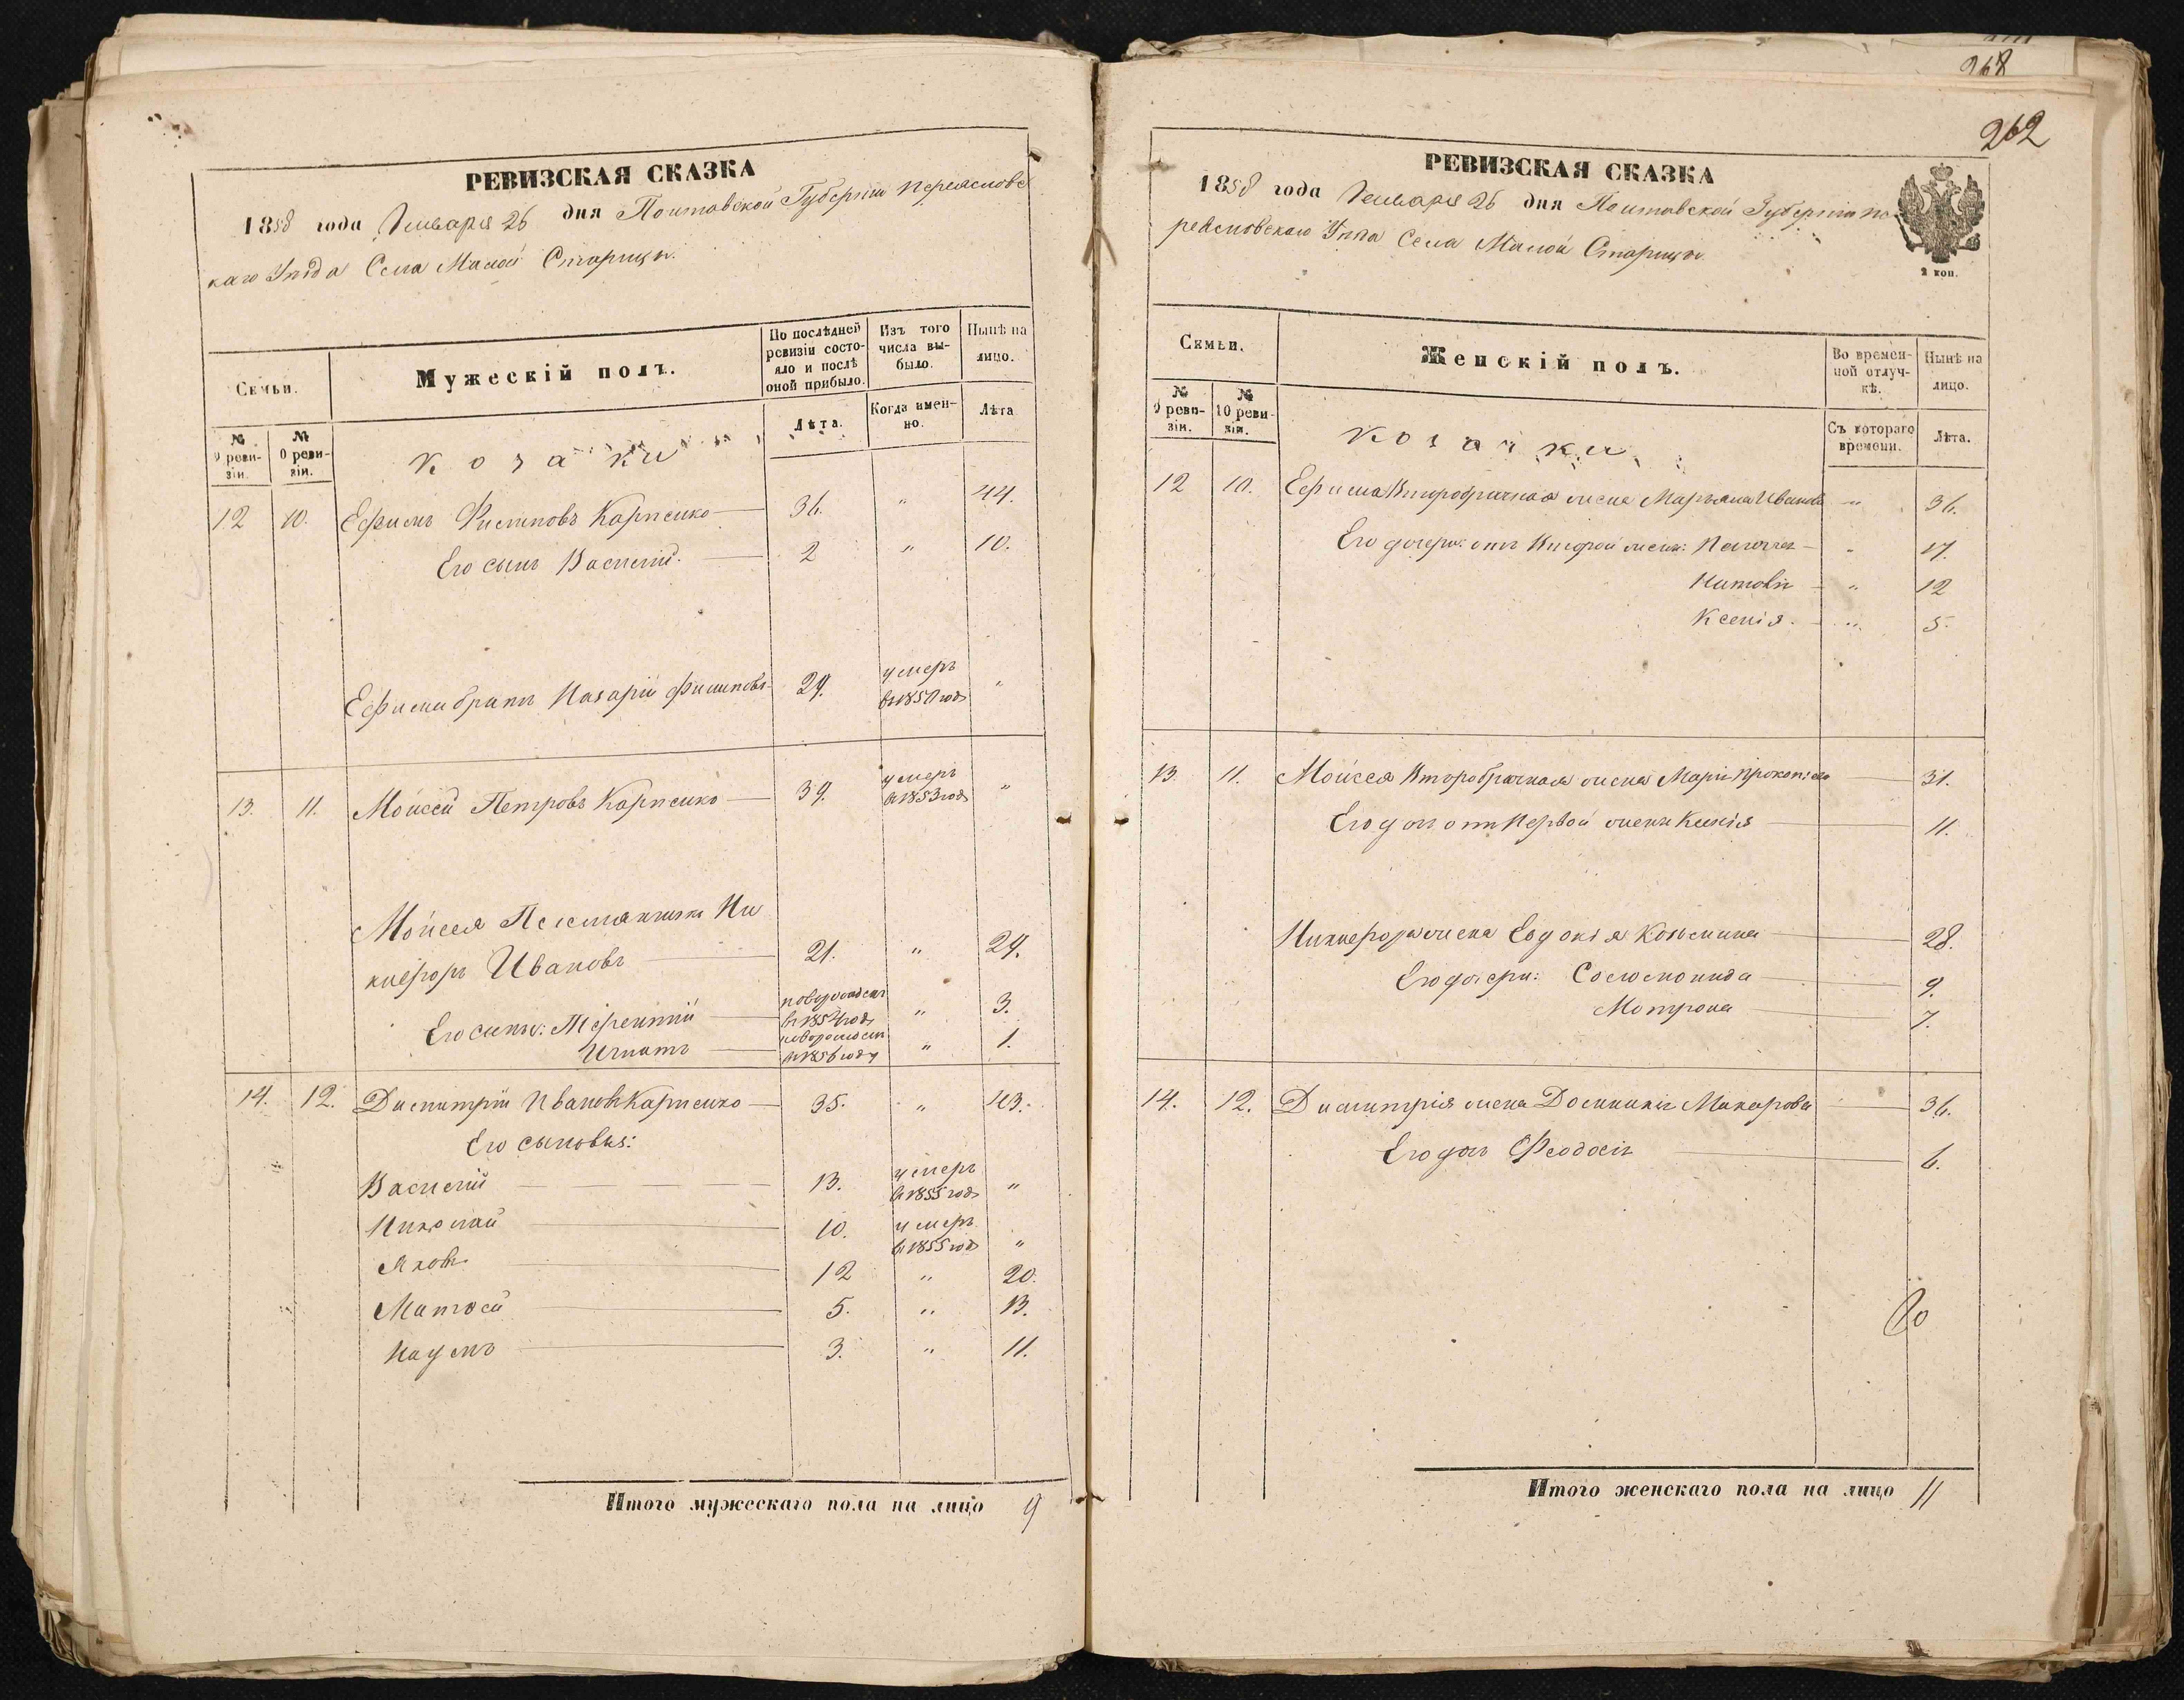 РЕВИЗСКАЯ СКАЗКА
1858 года Января 26 дня Полтавской Губерніи Переяславс
каго Уѣзда Села Малой Старицы.
Семьи.
Мужескій полъ.
По послѣдней
ревизіи состо-
яло и послѣ
оной прибыло.
Изъ того
числа вы-
было.
Нынѣ на
лицо.
№
9 реви-
зіи.
№
10 реви-
зіи.
Лѣта.
Когда имен-
но.
Лѣта
Козаки
12 10. Ефимъ Филиповъ Карпенко 36. " 44.
Его сынъ Василій. 2 " 10.
Ефима братъ Назарій Филиповъ 29. умеръ
въ 1850 годъ "
13. 11. Моисей Петровъ Карпенко 39. умеръ
въ 1853 годъ "
Моисея Племянникъ Ни
кифоръ Ивановъ 21. " 29.
Его сыны: Терентій новорожден
въ 1854 годъ " 3.
Игнатъ новорожден
въ 1856 году " 1.
14. 12. Димитрій Ивановъ Карпенко 35. " 43.
Его сыновья:
Василій 13. умеръ
въ 1855 годъ "
Николай 10. умеръ
въ 1855 годъ "
Яковъ 12 " 20.
Матвѣй 5. " 13.
Наумъ 3. " 11.
Итого мужескаго пола на лицо 9
268
262
РЕВИЗСКАЯ СКАЗКА
1858 года Января 26 дня Полтавской Губерніи Пе-
реяславскаго Уѣзда Села Малой Старицы
2 коп.
Семьи.
Женскій полъ.
Во времен-
ной отлуч-
кѣ.
Нынѣ на
лицо.
№
9 реви-
зіи.
№
10 реви-
зіи.
Съ котораго
времени.
Лѣта.
Козачки
12 10. Ефима Второбрачная жена Марьяна Иванова " 36.
Его дочери: отъ Второй жены: Пелагея " 17.
Наталія " 12
Ксенія. " 5.
13. 11. Моисея Второбрачная жена Марія Прокопіева 31.
Его дочь отъ Первой жены Ксенія 11.
Никифора жена Евдокія Козьмина 28.
Его дочери: Соломонида 9.
Мотрона 7.
14. 12. Димитрія жена Домникія Макарова 36.
Его дочь Феодосія 6.
Итого женскаго пола на лицо 11